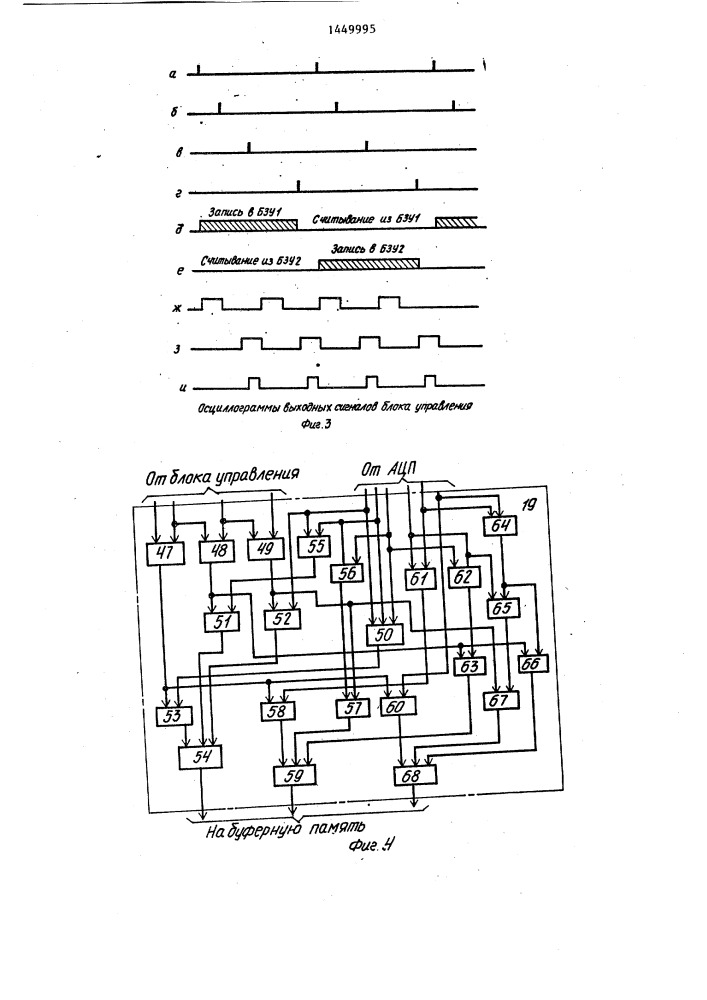 1449995
а
б
в
г
Запись в БЗУ1
Считывание из БЗУ1
д
Запись в БЗУ2
Считывание из БЗУ2
е
ж
з
и
Осциллограммы выходных сигналов блока управления
Фиг.3
От блока управления
От АЦП
19
64
47
48
49
55
56
61
62
65
51
52
50
63
66
53
58
57
60
67
54
59
68
На буферную память
Фиг. 4